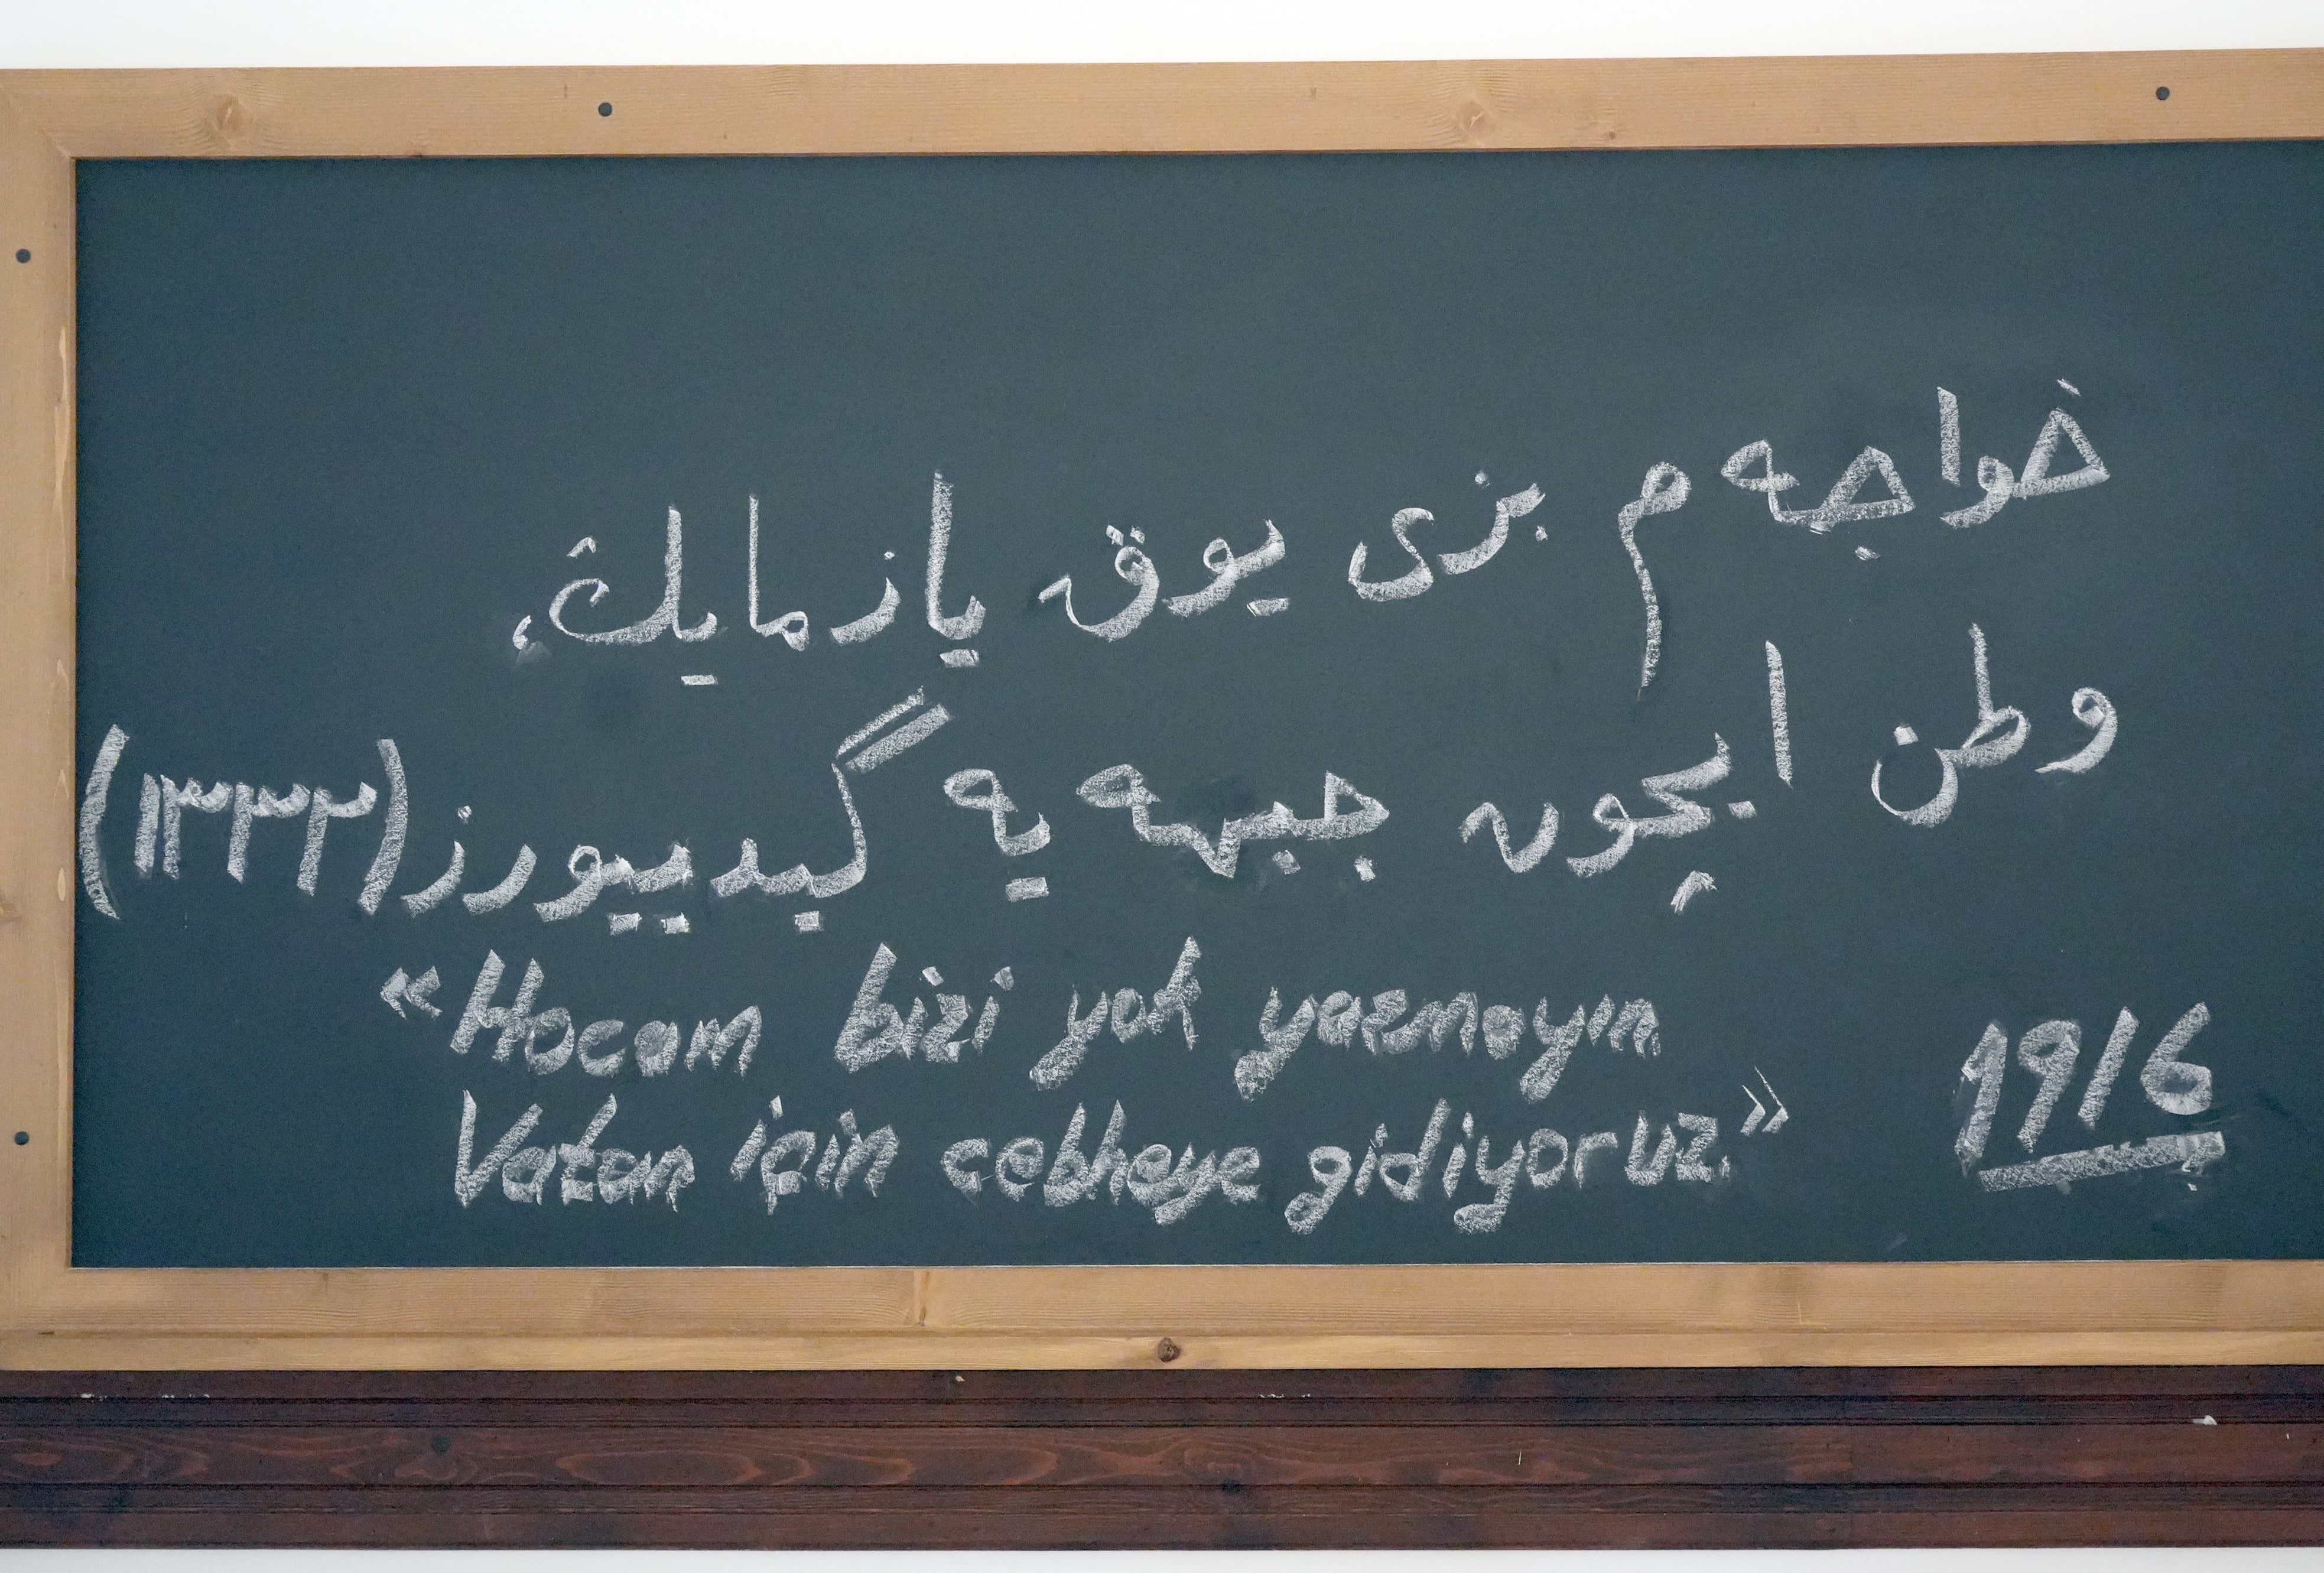 خواجه م بزی یوق یازمایڭ،
وطن ایچون جبهه یه گیدییورز (۱۳۳۲)
«Hocam bizi yok yazmayın
Vatan için cebheye gidiyoruz.»
1916